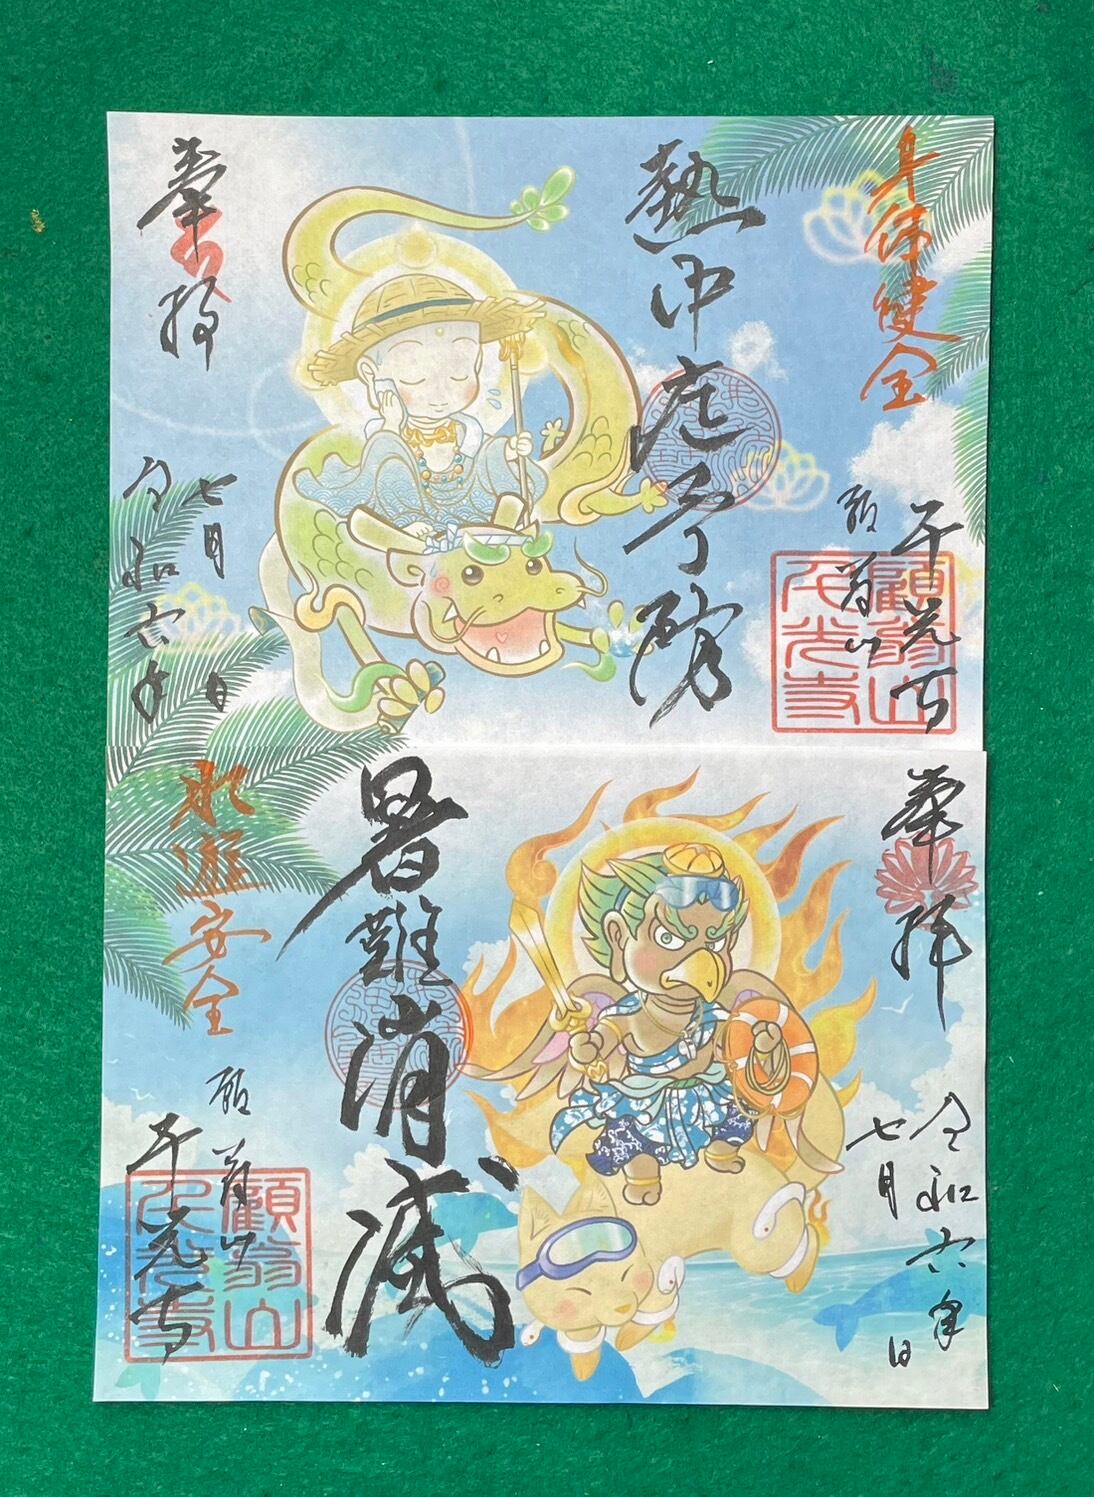 身体健全
千光寺
顧翁山
顧翁山
千光寺
熱中症予防
奉拝
七月 日
令和六年
奉拝
令和六年
七月 日
暑難消滅
水遊安全
顧翁山
千光寺
顧翁山
千光寺